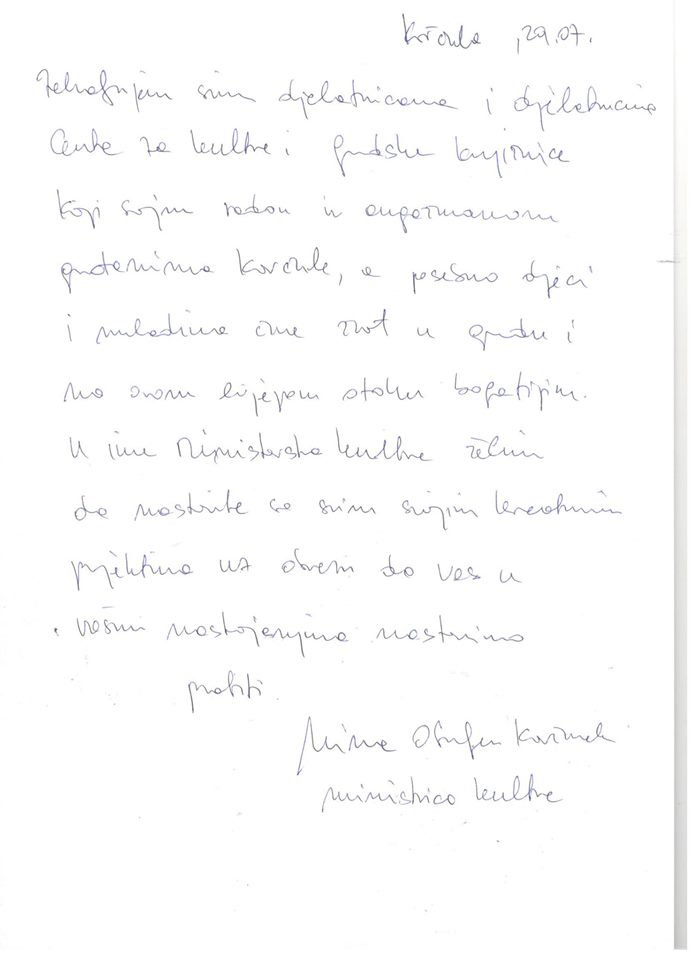 Korčula, 29.07.
Zahvaljujem svim djelatnicama i djelatnicima
Centra za kulturu i Gradske knjižnice
koji svojim radom i angažmanom
građanima Korčule, a posebno djeci
i mladima čine život u gradu i
na ovom lijepom otoku bogatijim.
U ime Ministarstva kulture želim
da nastavite sa svim svojim kreativnim
projektima uz da vas u
vašim nastojanjima nastavimo
pratiti
Nina Obuljen Koržinek
ministrica kulture